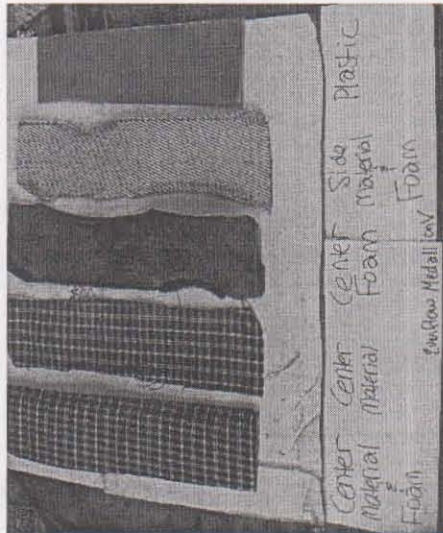 Center
Material
&
Foam
Center
Material
Center
Foam
Side
Material
&
Foam
Plastic
Medallion V